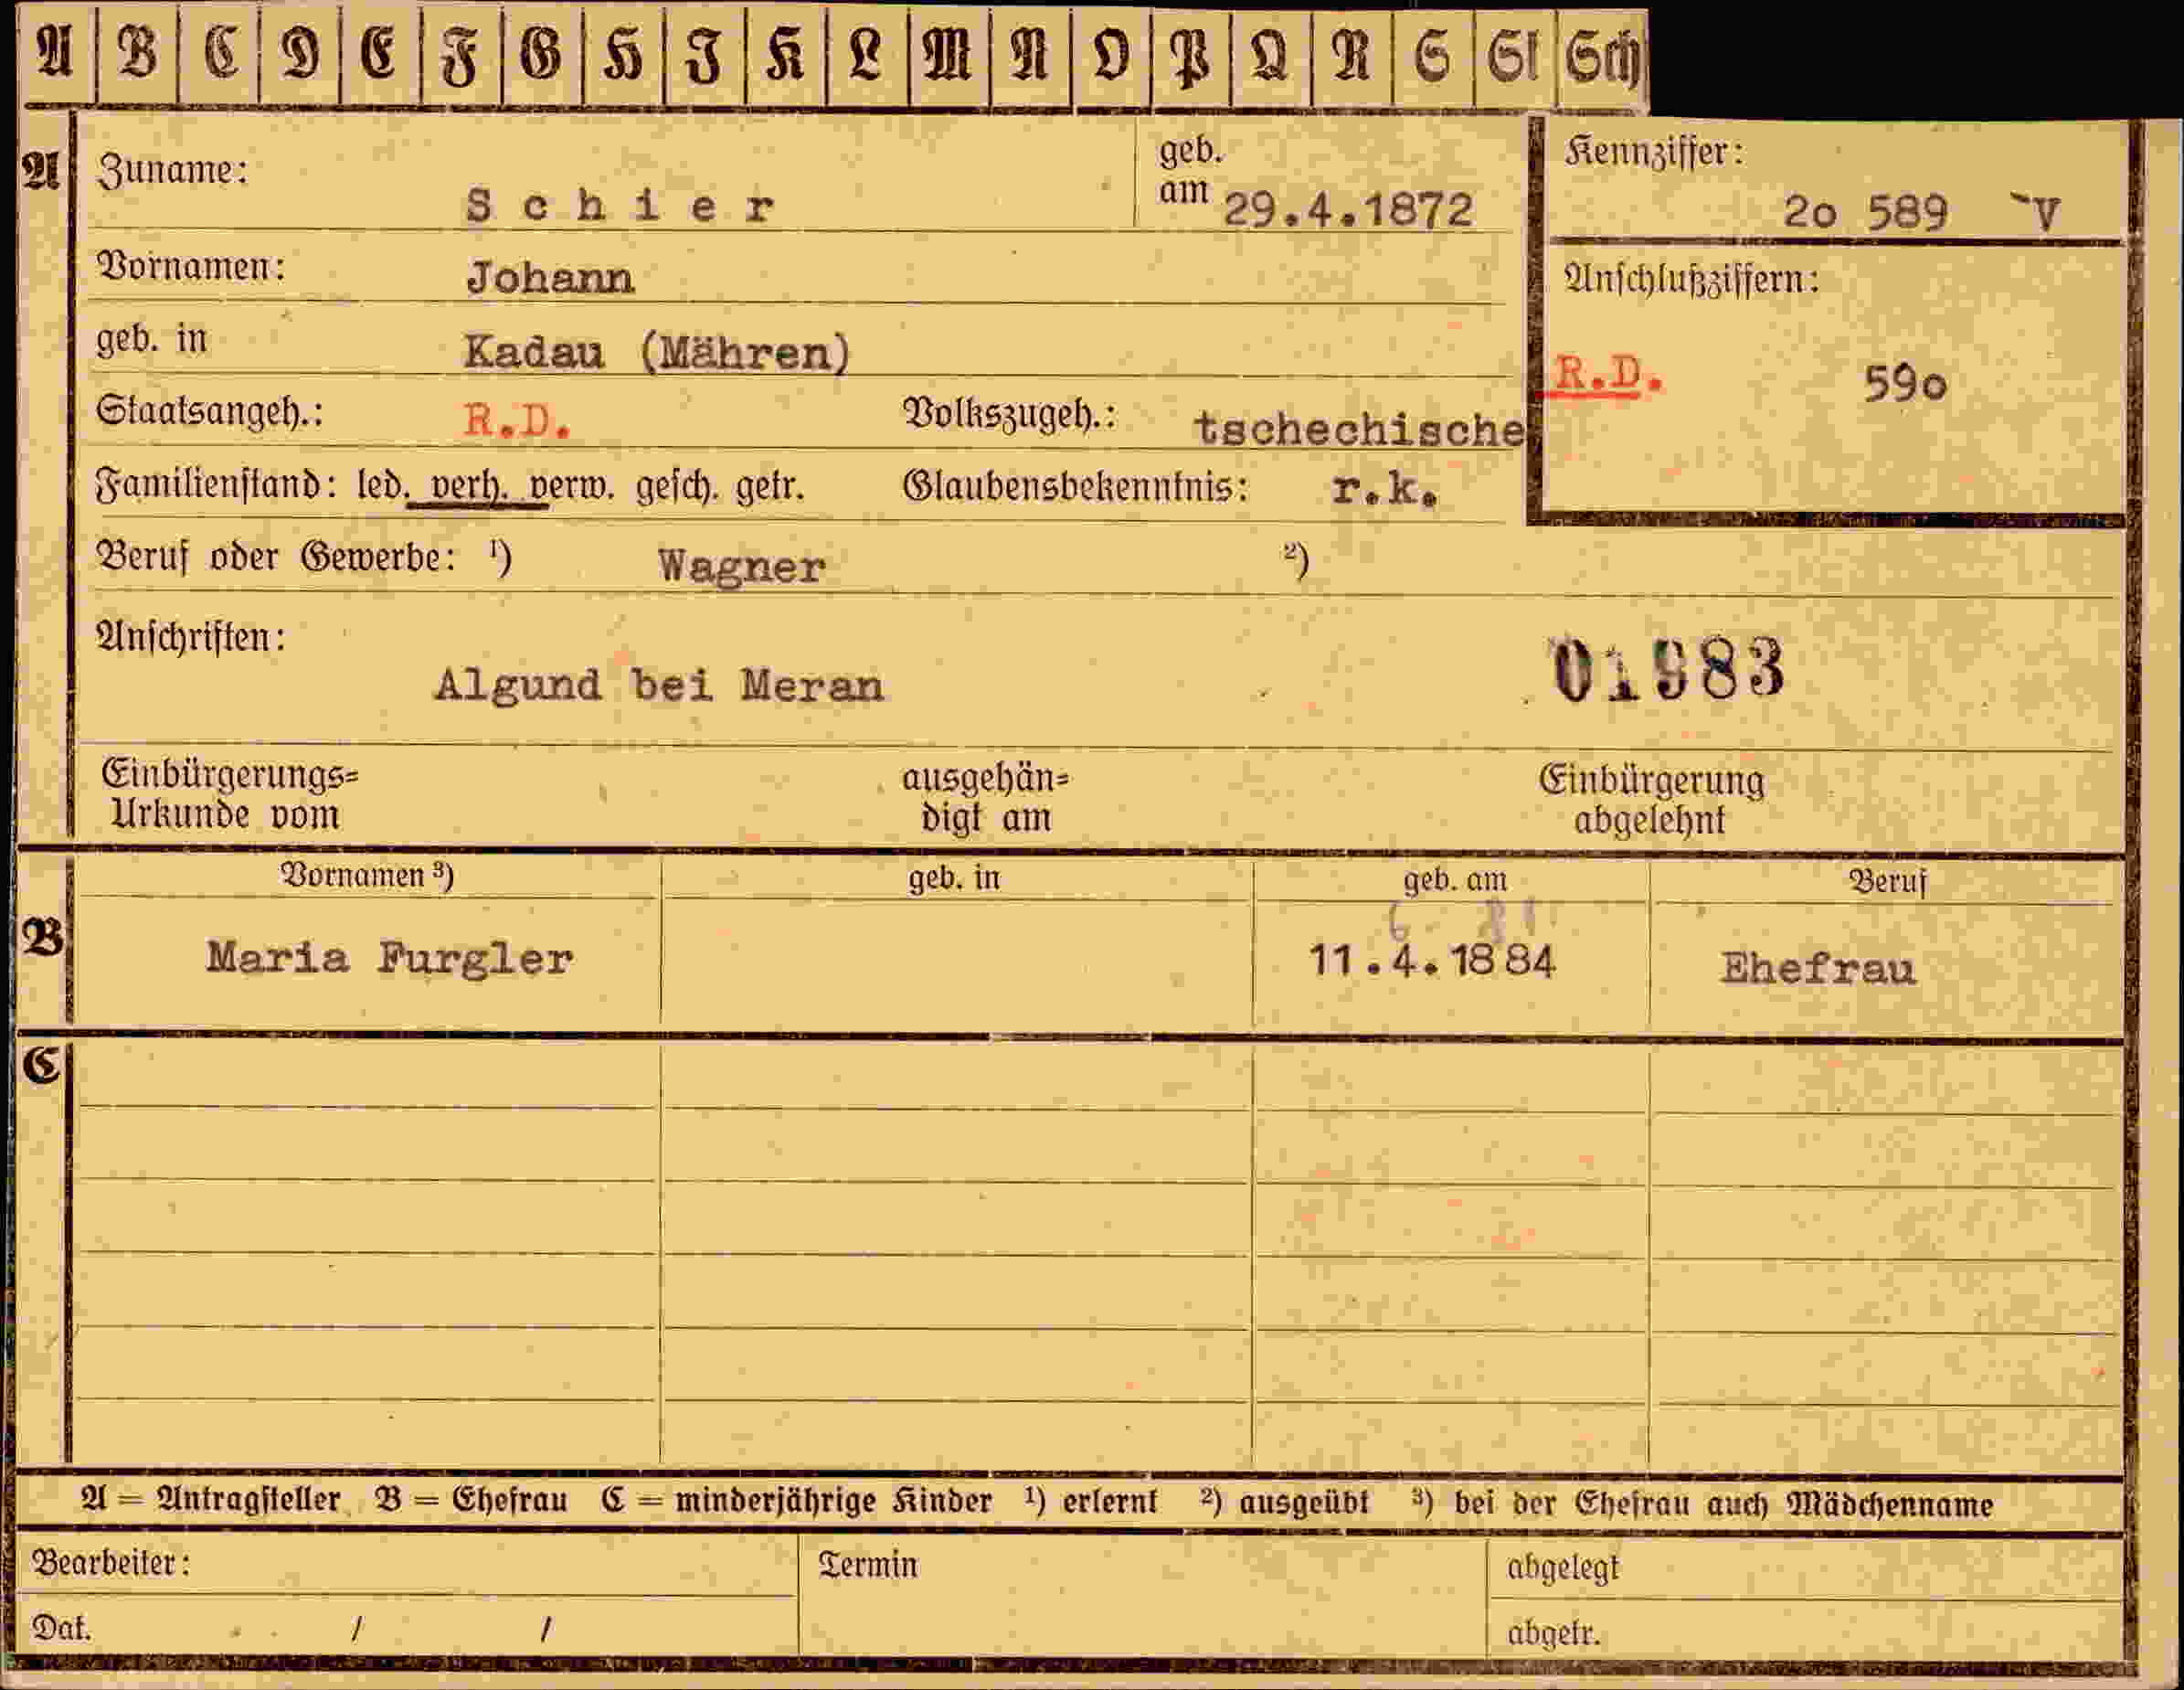 A B C D E F G H I K L M N O P Q R S St Sch
A Zuname: Schier geb. am 29.4.1872
Kennziffer: 2o 589 V
Vornamen: Johann
Anschlußziffern:
geb. in Kadau (Mähren)
R.D. 59o
Staatsangeh.: R.D. Volkszugeh.: tschechische
Familienstand: led. verh. verw. gesch. getr. Glaubensbekenntnis: r.k.
Beruf oder Gewerbe: ¹) Wagner ²)
Anschriften:
Algund bei Meran 01983
Einbürgerungs= ausgehän= Einbürgerung
Urkunde vom digt am abgelehnt
Vornamen ³) geb. in geb. am Beruf
B Maria Furgler 11.4.1884 Ehefrau
C
A = Antragsteller B = Ehefrau C = minderjährige Kinder ¹) erlernt ²) ausgeübt ³) bei der Ehefrau auch Mädchenname
Bearbeiter: Termin abgelegt
Dat. / / abgetr.